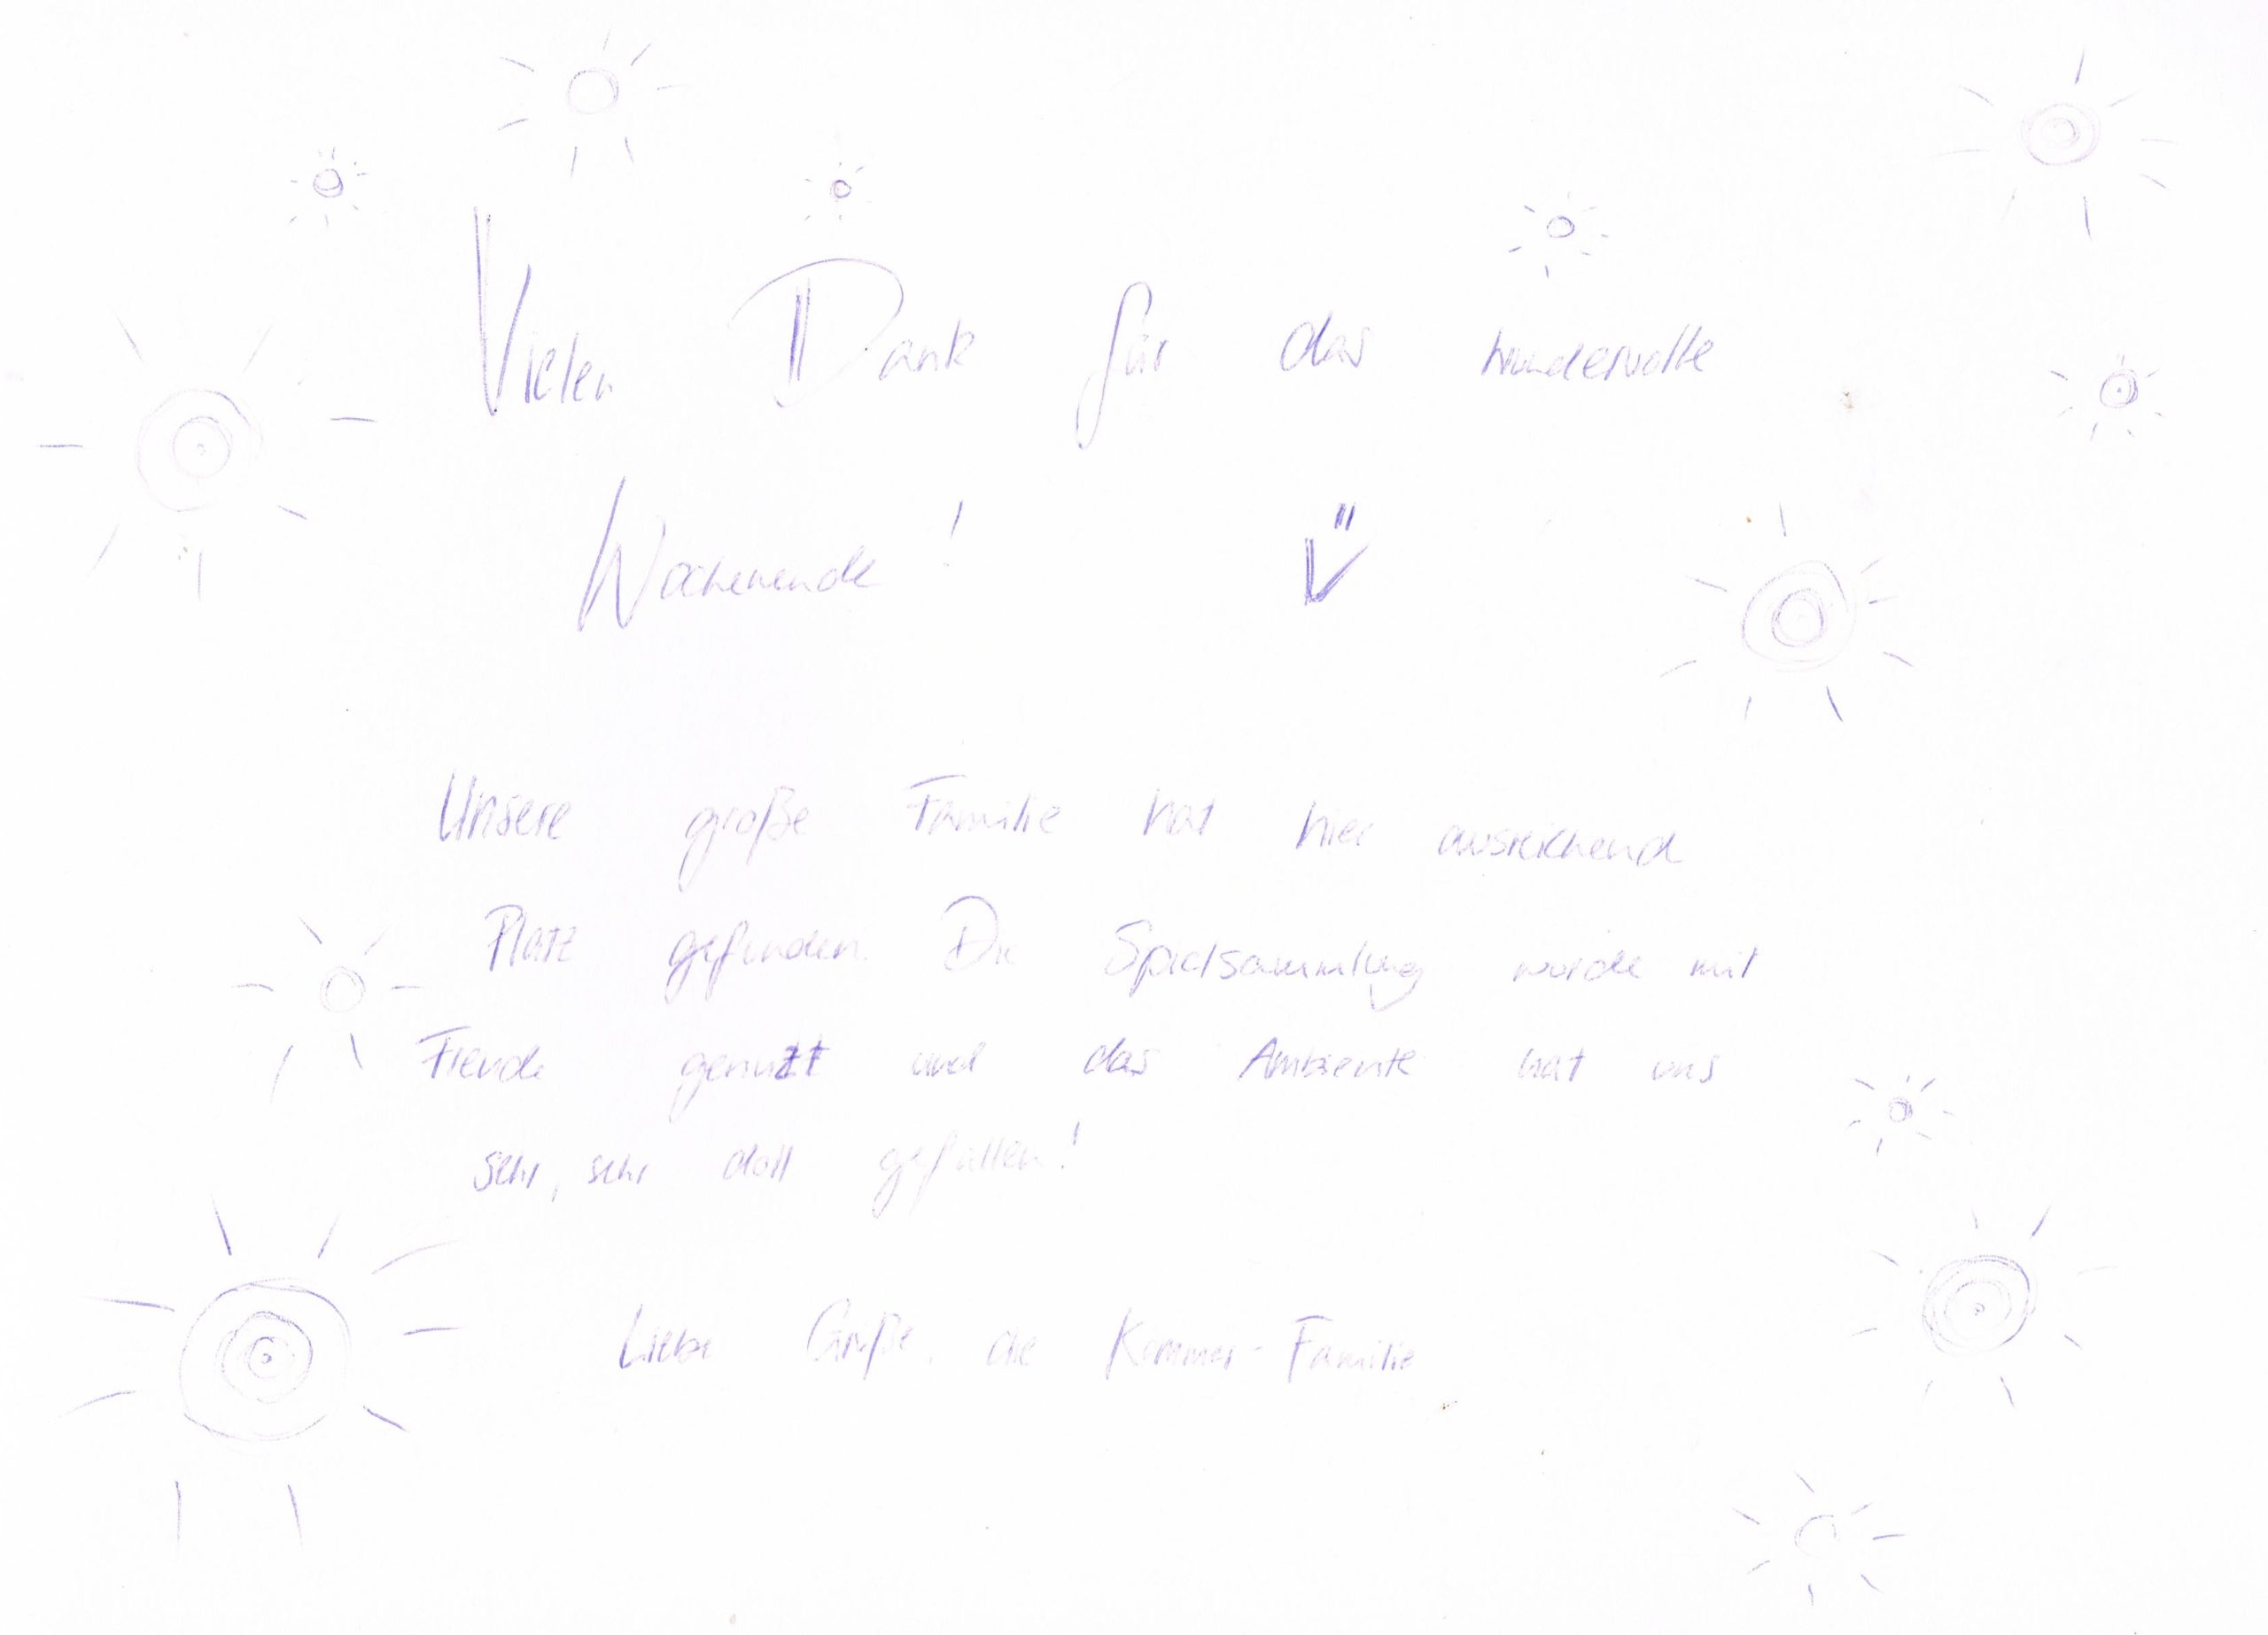 Vielen Dank für das wundervolle
Wochenende!
Unsere große Familie hat hier ausreichend
Platz gefunden. Die Spielsammlung wurde mit
Freude genutzt und das Ambiente hat uns
sehr, sehr doll gefallen!
Liebe Grüße, die Kommer-Familie